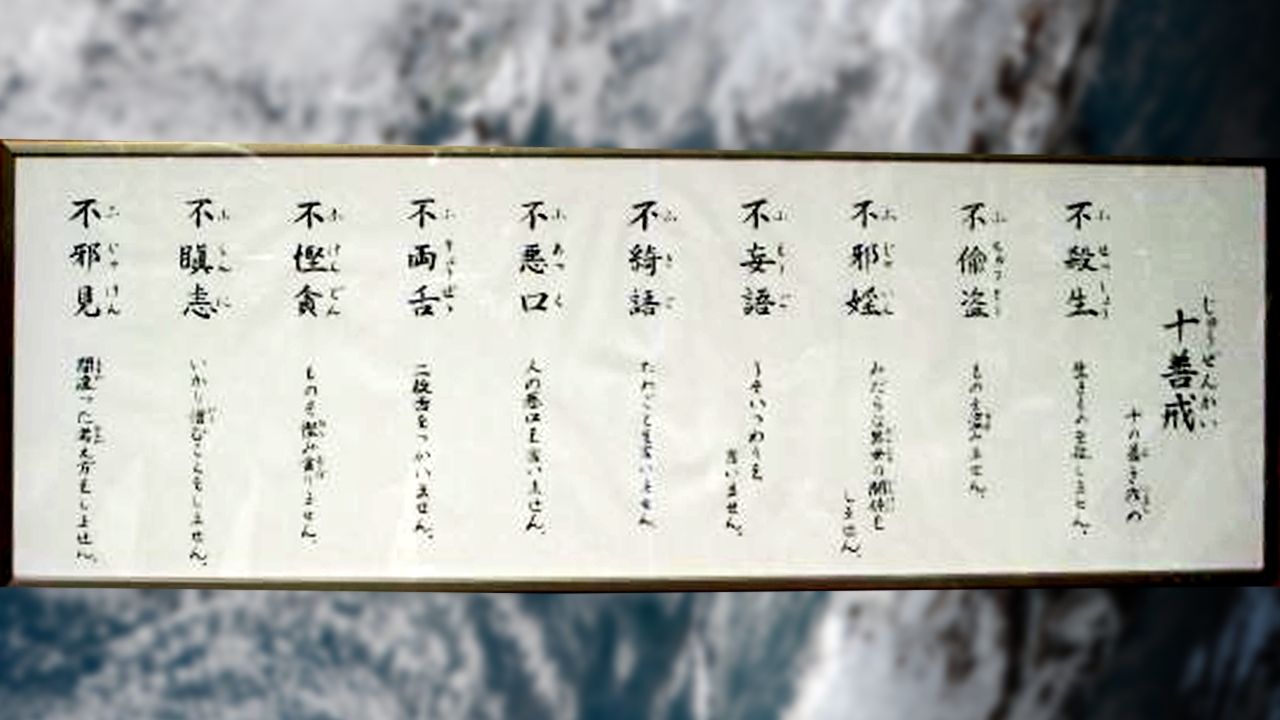 十善戒
十の善き戒め
不殺生
生きもの主殺しません。
不偸盗
ものを盗みません。
不邪婬
みだらな男女の関係を
しません。
不妄語
うそいつわりを
言いません。
不綺語
たわごとを言いません。
不悪口
人の悪口を言いません。
不両舌
二枚舌をつかいません。
不慳貪
ものを慳み貪りません。
不瞋恚
いかり憎むことをしません。
不邪見
間違った考え方をしません。